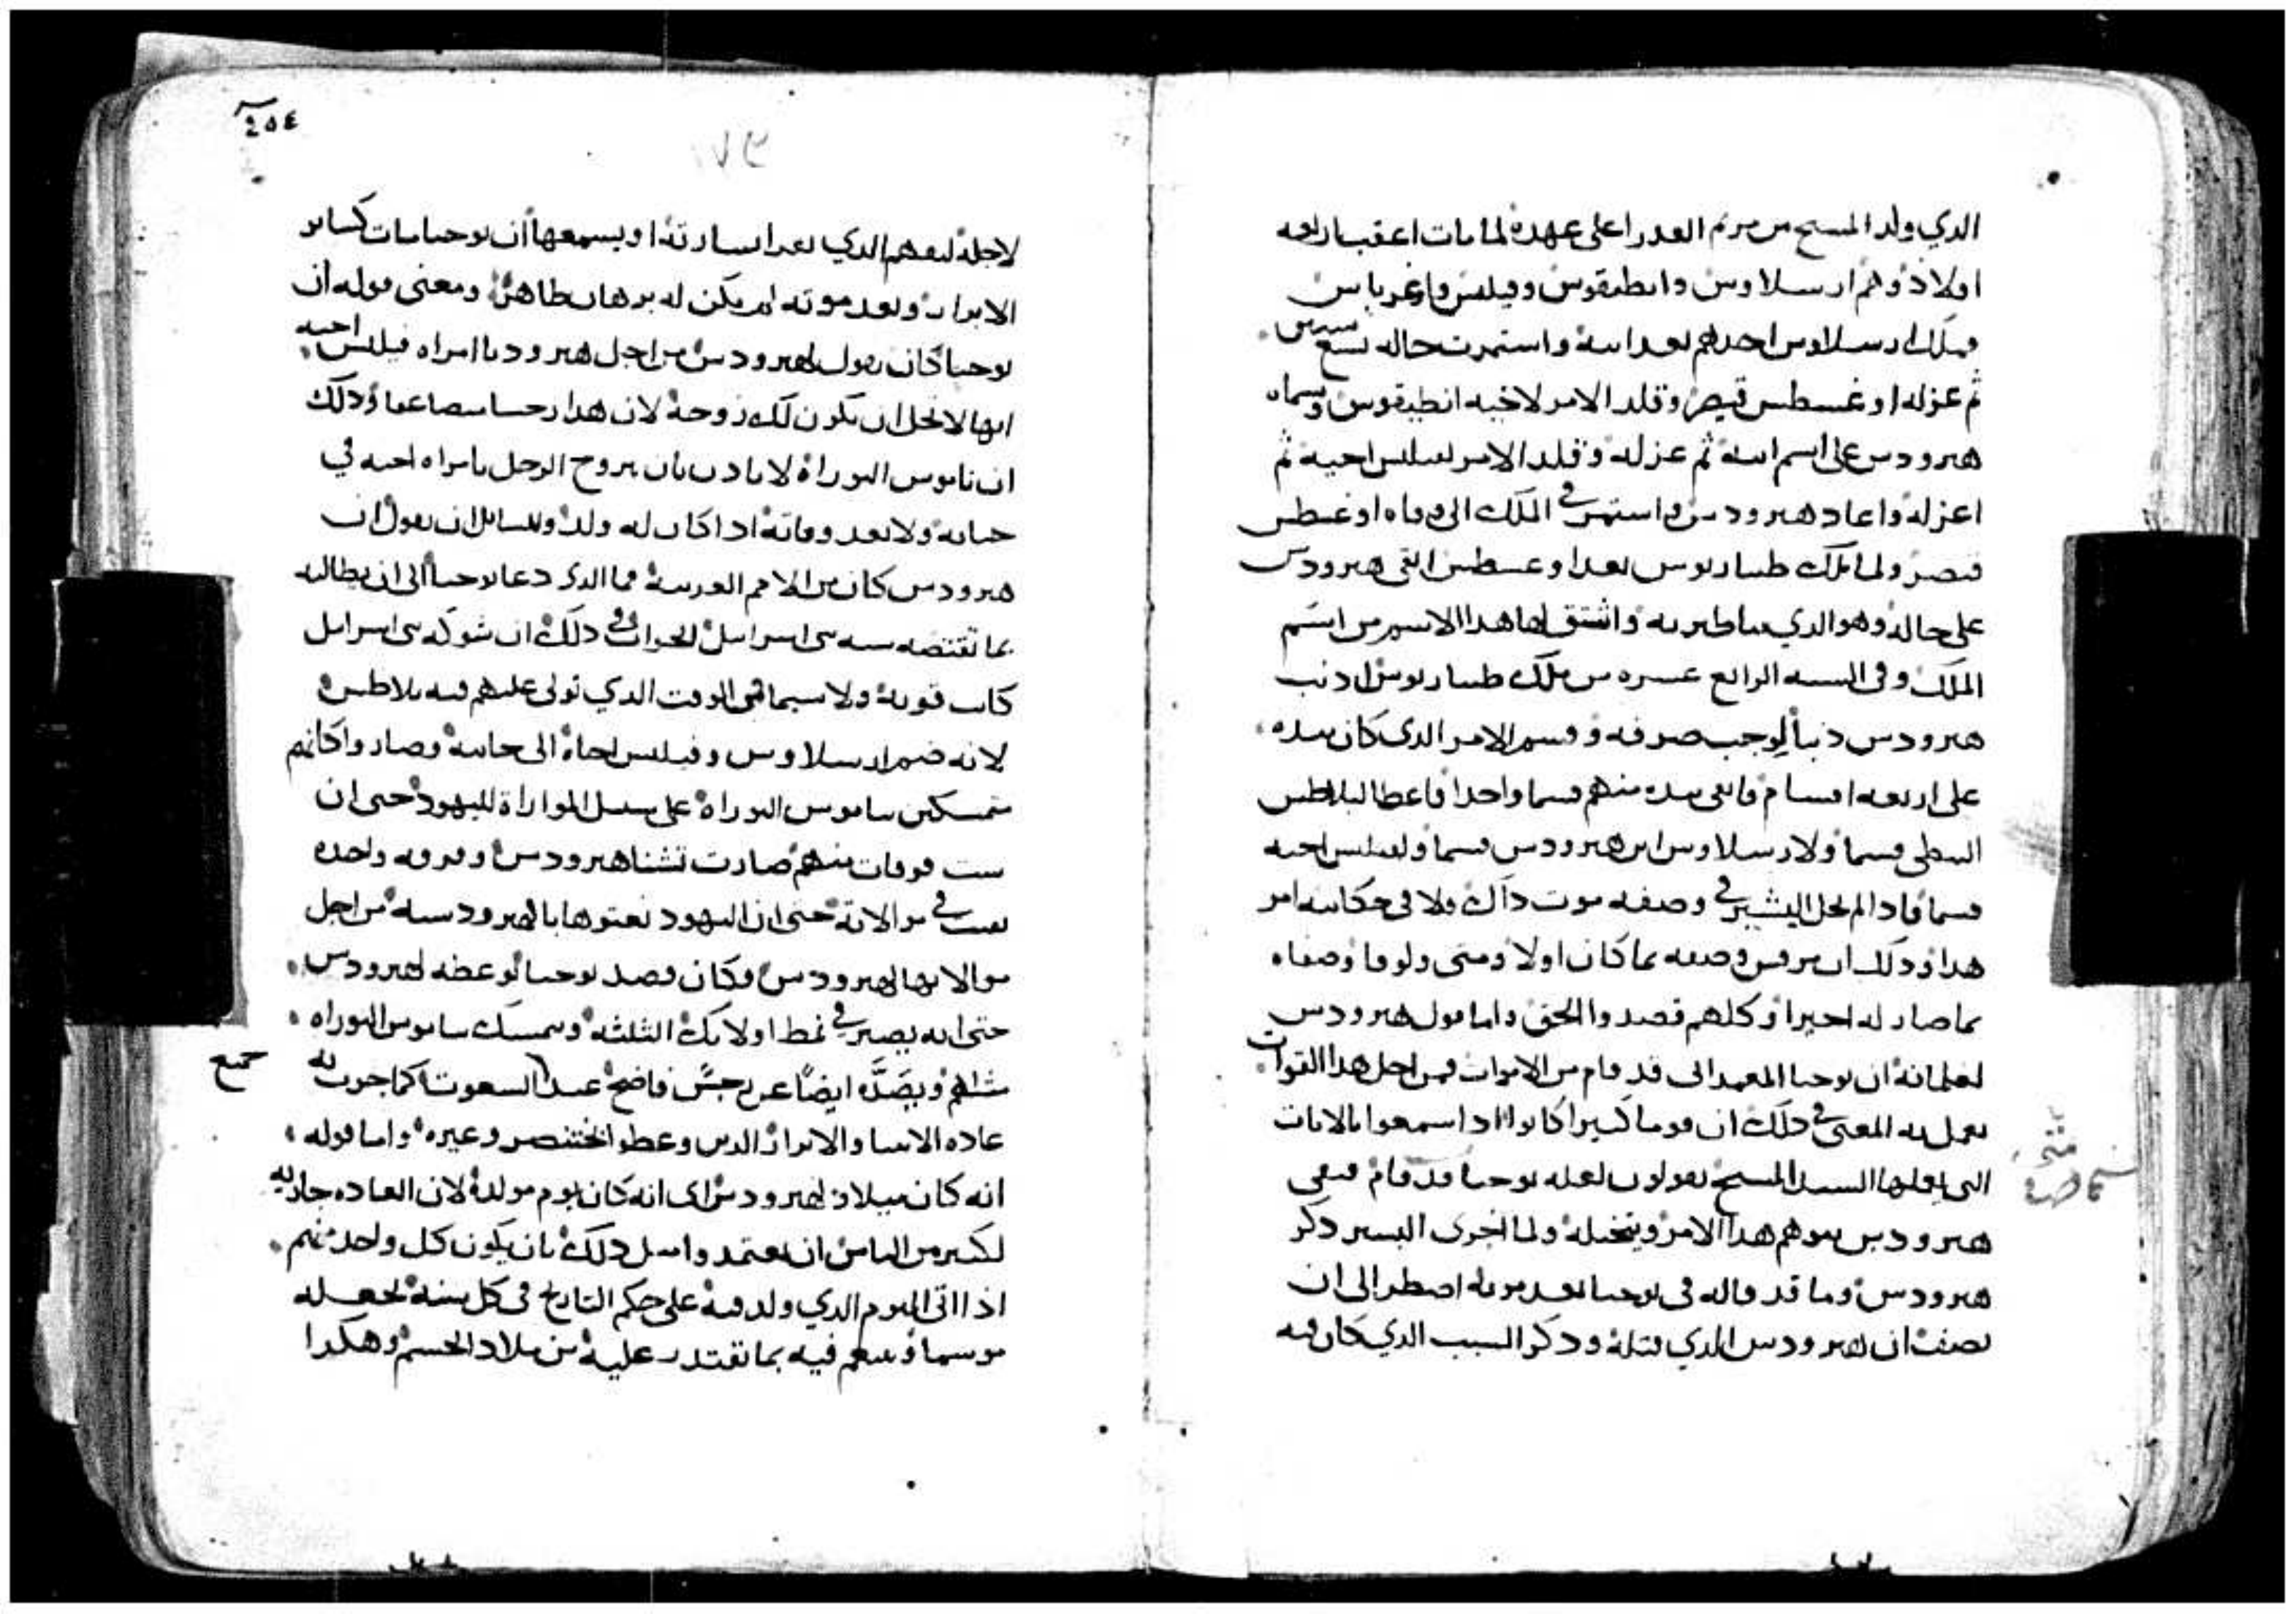 الدي ولد المسيح من مريم العدرا على عهده لما مات اعقب اربعه
اولاد وهم ارسلاوس وانطيقوس وفيلبس واغرباس
فملك ارسلاوس احدهم بعد ابيه واستمرت حاله تسع سنين
ثم عزله اوغسطس قيصر وقلد الامر لاخيه انطيقوس وسماه
هيرودس على اسم ابيه ثم عزله وقلد الامر لفيلبس اخيه ثم
اعزله واعاد هيرودس واستمر في الملك الى وفاه اوغسطس
قيصر ولما ملك طيباريوس بعد اوغسطس ابقى هيرودس
على حاله وهو الدي بنا طبريه واشتق لها هدا الاسم من اسم
الملك وفي السنه الرابع عشره من ملك طيباريوس ادنب
هيرودس دنباً لوجب صرفه وقسم الامر الدى كان بيده
على اربعه اقسام فابقى بيده منهم قسما واحدا فاعطا لبيلاطس
النبطى قسما ولارسلاوس ابن هيرودس قسما ولفيلبس اخيه
قسما فادا لم يخل البشير في وصفه موت داك ولا في حكايته امر
هدا ودلك ان مرقس وصفه بما كان اولا ومتى ولوقا وصفاه
بما صار له اخيرا وكلهم قصدوا الحق واما قول هيرودس
لغلمانه ان يوحنا المعمدانى قد قام من الاموات فمن اجل هدا القوات
تعمل به المعنى في دلك ان قوما كثيرا كانوا اد اسمعوا بالايات
التى يفعلها السيد المسيح يقولون لعله يوحنا قد قام فبقى
هيرودس يتوهم هدا الامر ويتخيله ولما اجرى البشير دكر
هيرودس وما قد قاله في يوحنا بعد موته اضطر الى ان
يصف ان هيرودس الدي قتله ودكر السبب الدي كان فيه
متى
٢٥٤
لاجله ليفهم الدي يقرا بشارته او يسمعها ان يوحنا مات كساير
الابرار وبعد موته لم يكن له برهان ظاهر ومعنى قوله ان
يوحنا كان يقول لهيرودس من اجل هيروديا امراه فيلبس اخيه
انها لا تحل ان تكون لك زوجة لان هدا رجسا مضاعفا ودلك
ان ناموس التوراة لا يادن بان يتزوج الرجل بامراه اخيه في
حياته ولا بعد وفاته ادا كان له ولد وللسايل ان يقول ان
هيرودس كان من الامم الغريبة فما الدى دعا يوحنا الى ان يطالبه
بما تقتضيه سنه بنى اسراييل الجواب في دلك ان شوكه بنى اسراييل
كانت قوية ولا سيما في الوقت الدي تولى عليهم فيه بيلاطس
لانه ضم ارسلاوس وفيلبس اخاه الى جانبه وصاروا كانهم
متمسكين بناموس التوراة على سبيل المواراة لليهود حتى ان
ست فرقات منهم صارت تشنا هيرودس وفرقه واحده
بقيت في موالاته حتى ان اليهود نعتوها بالهيرودسيه من اجل
موالاتها لهيرودس فكان قصد يوحنا لوعظه لهيرودس
حتى انه يصير في نمط اولايك الثلثه وتمسك بناموس التوراه
مثلهم ويصَدَّه ايضًا عن رجسً فاضح عند السعوت كما جرت به
جميع
عاده الانبيا والابرار الدين وعظوا بختنصر وغيره واما قوله
انه كان ميلاد لهيرودس اى انه كان يوم مولده لان العاده جاريه
لكثير من الناس ان يعتمدوا مثل دلك بان يكون كل واحد منهم
ادا اتى اليوم الدي ولد فيه على حكم التاريخ في كل سنه يجعله
موسما وينعم فيه بما يقتدر عليه من ملاد الجسم وهكدا